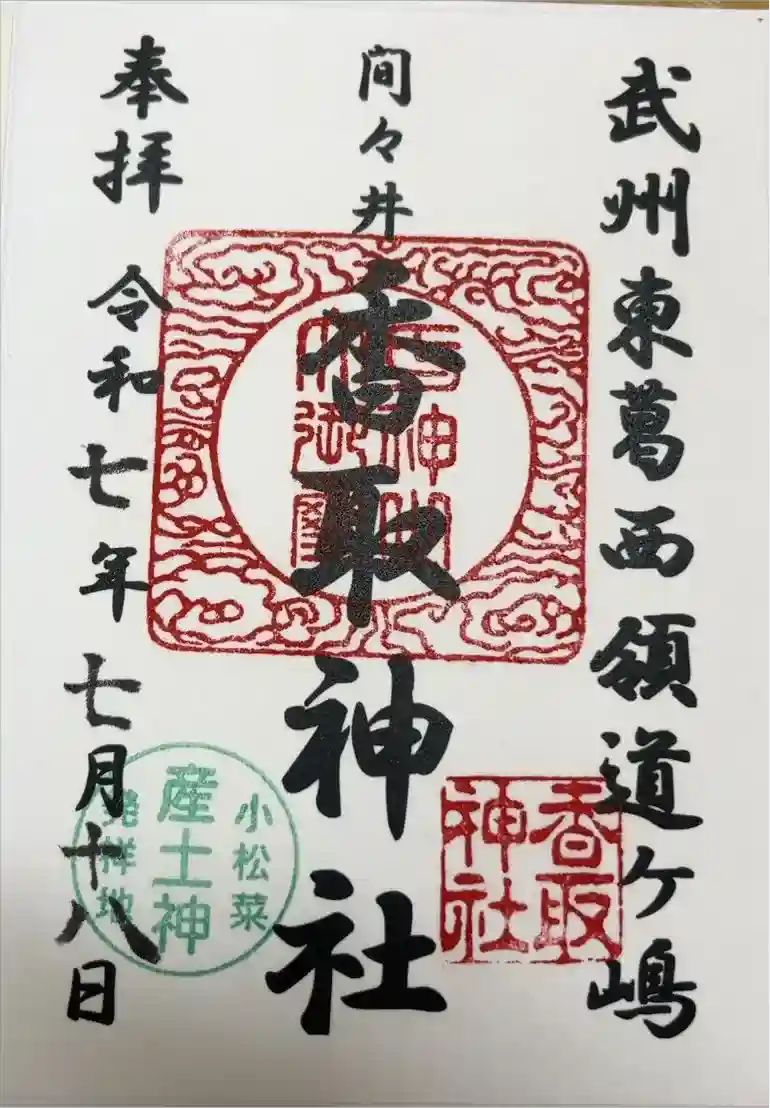 武州東葛西領道ケ嶋
間々井
香取神社
奉拝
令和七年七月十八日
香取
神社
小松菜
産土神
発祥地